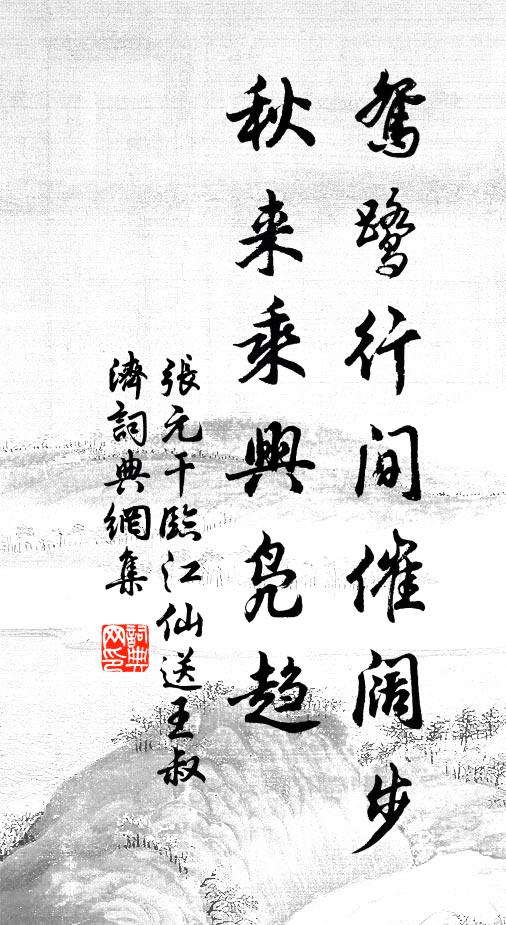 鴛鷺行間催闊步
秋来乘興鳧趨
張元干臨江仙送王叔
濟詞典網集
詞典網印